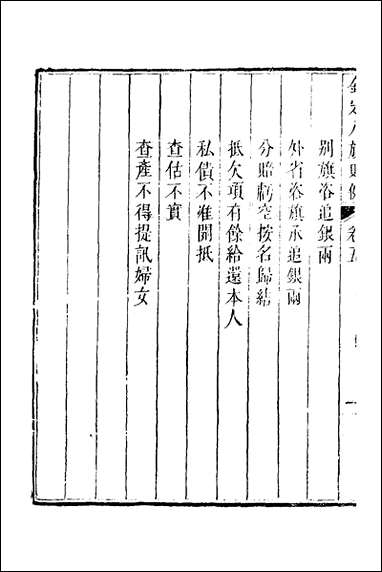 欽定八旗則例 卷五
別旗咨追銀兩
外省咨旗承追銀兩
分賠虧空按名歸結
抵欠項有餘給還本人
私債不准開抵
查估不實
查產不得提訊婦女